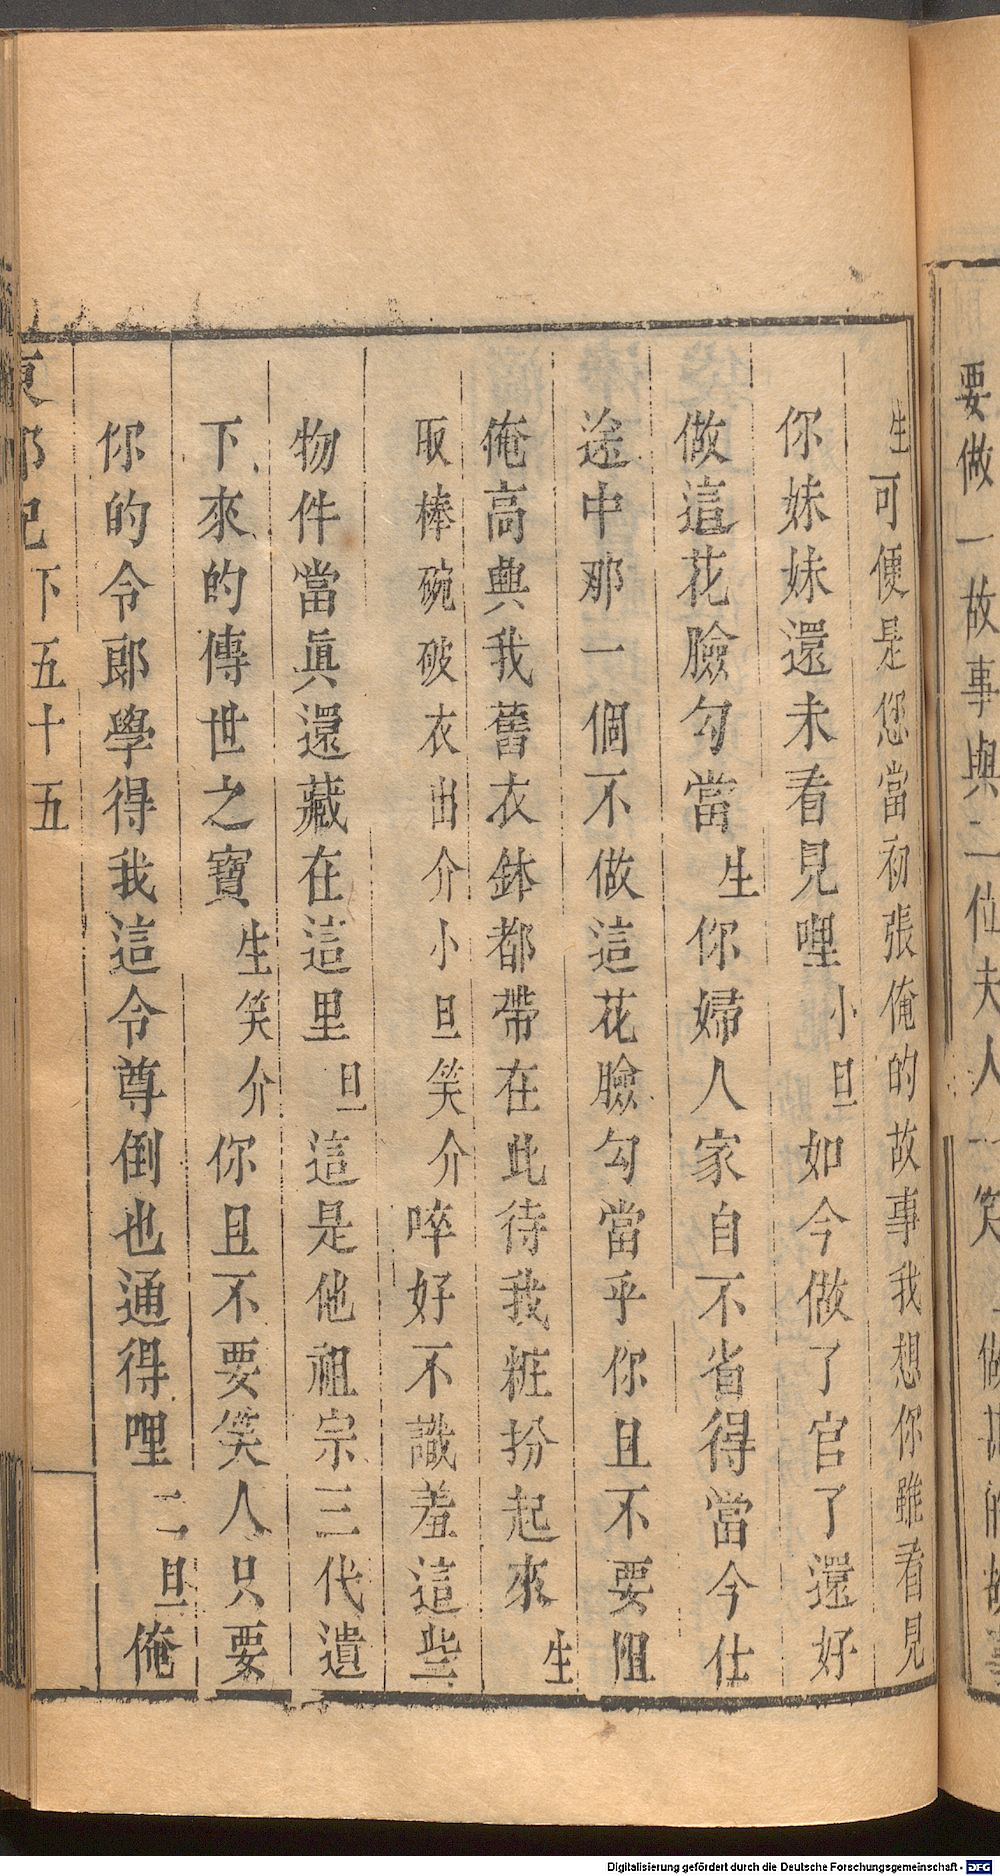 要做一故事與二位夫人一笑
生可便是您當初張俺的故事我想你雖看見
你妹妹還未看見哩小旦如今做了官了還好
做這花臉勾當生你婦人家自不省得當今仕
途中那一個不做這花臉勾當乎你且不要阻
俺高興我舊衣鉢都帶在此待我粧扮起來生
取棒碗破衣出介小旦笑介啐好不識羞這些
物件當眞還藏在這里旦這是他祖宗三代遺
下來的傳世之寶生笑介你且不要笑人只要
你的令郎學得我這令尊倒也通得哩二旦俺
東郭記下五十五
Digitalisierung gefördert durch die Deutsche Forschungsgemeinschaft - DFG